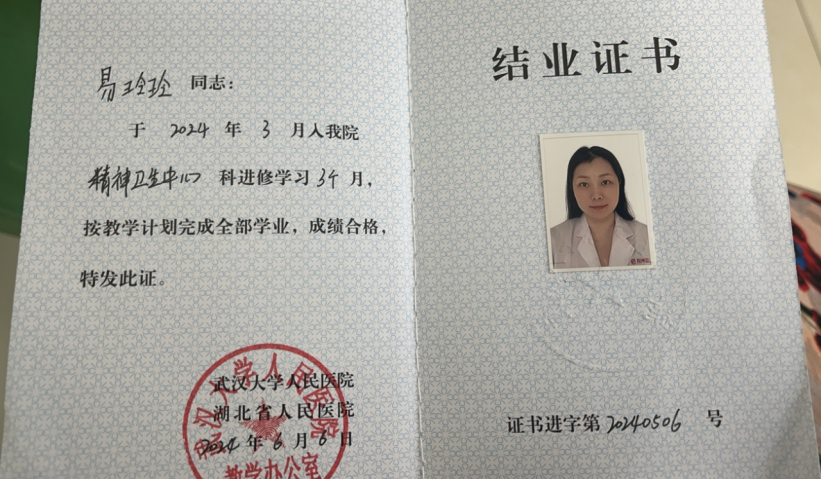 易玲玲 同志：
于 2024 年 3 月入我院
精神卫生中心 科进修学习 3个 月，
按教学计划完成全部学业，成绩合格，
特发此证。
武汉大学人民医院
湖北省人民医院
2024 年 6 月 6 日
武汉大学人民医院
教学办公室
结业证书
证书进字第 20240506 号